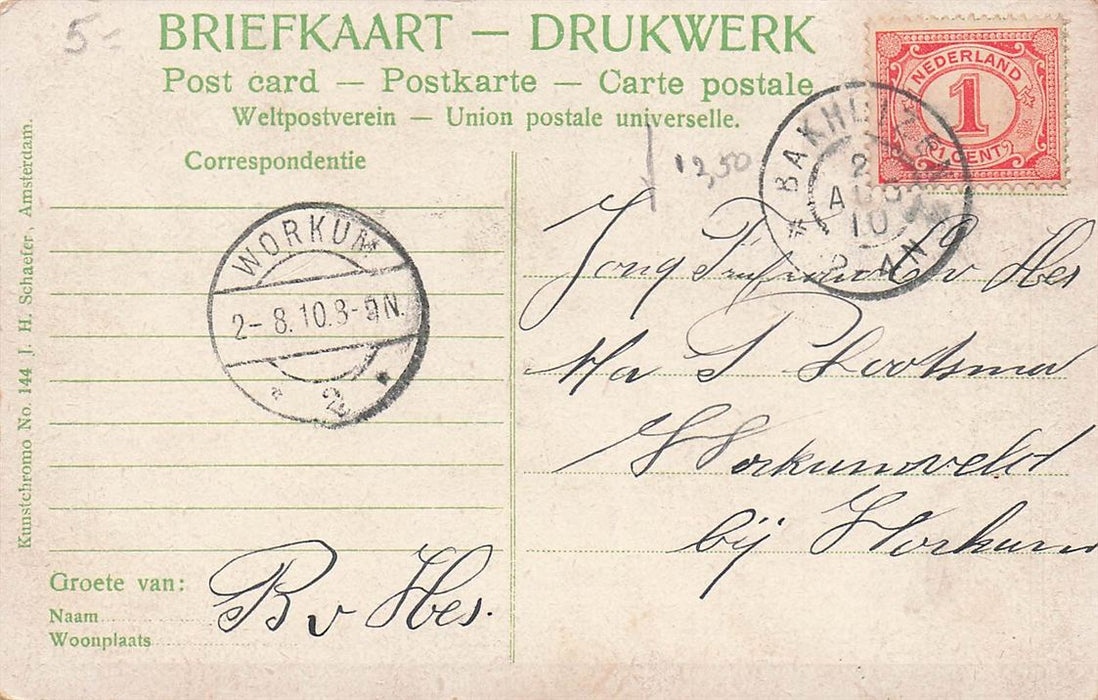 5-
BRIEFKAART — DRUKWERK
Post card — Postkarte — Carte postale
Weltpostverein — Union postale universelle.
Correspondentie
12,50
NEDERLAND
1
(1 CENT)
BAKHUIZEN
2
AUG
10
AN
WORKUM
2-8.10.8-9N.
* 2 *
Jong v Hes
Ma P Lootsma
Workumveld
bij Workum
Groete van:
B v Hes.
Naam
Woonplaats
Kunstchromo No. 144 J. H. Schaefer, Amsterdam.